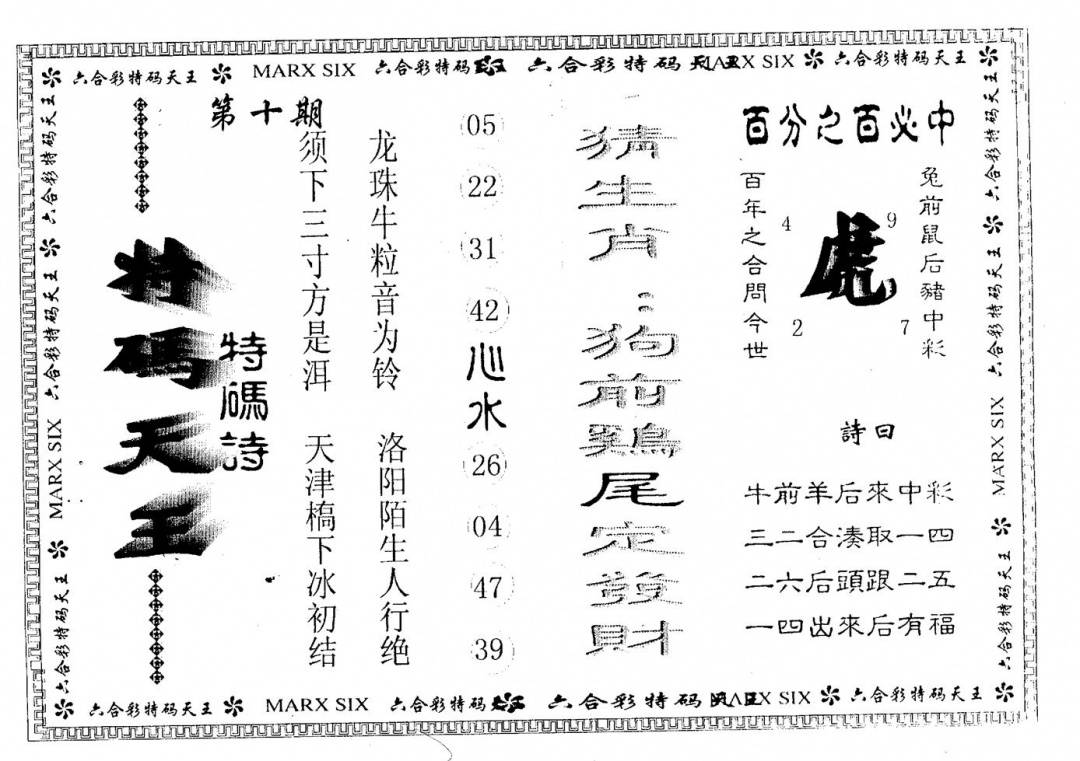 六合彩特码天王 MARX SIX 六合彩特码 六合彩特码 MARX SIX 六合彩特码天王
百分之百必中
兔前鼠后豬中彩
百年之合問今世
虎
4
9
2
7
詩曰
牛前羊后來中彩
三二合湊取一四
二六后頭跟二五
一四出來后有福
猜生肖：狗前鷄尾定發財
05
22
31
42
心水
26
04
47
39
第十期
龙珠牛粒音为铃 洛阳陌生人行绝
须下三寸方是洱 天津槁下冰初结
特碼詩
特码天王
六合彩特码天王 六合彩特码天王 MARX SIX 六合彩特码天王
六合彩特码天王 六合彩特码天王 MARX SIX 六合彩特码天王
六合彩特码天王 MARX SIX 六合彩特码 六合彩特码 MARX SIX 六合彩特码天王